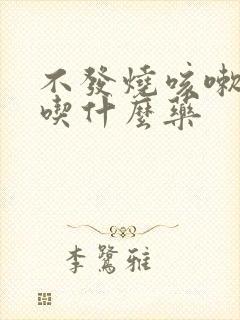 不發燒咳嗽
喫什麼藥
李鷺雅